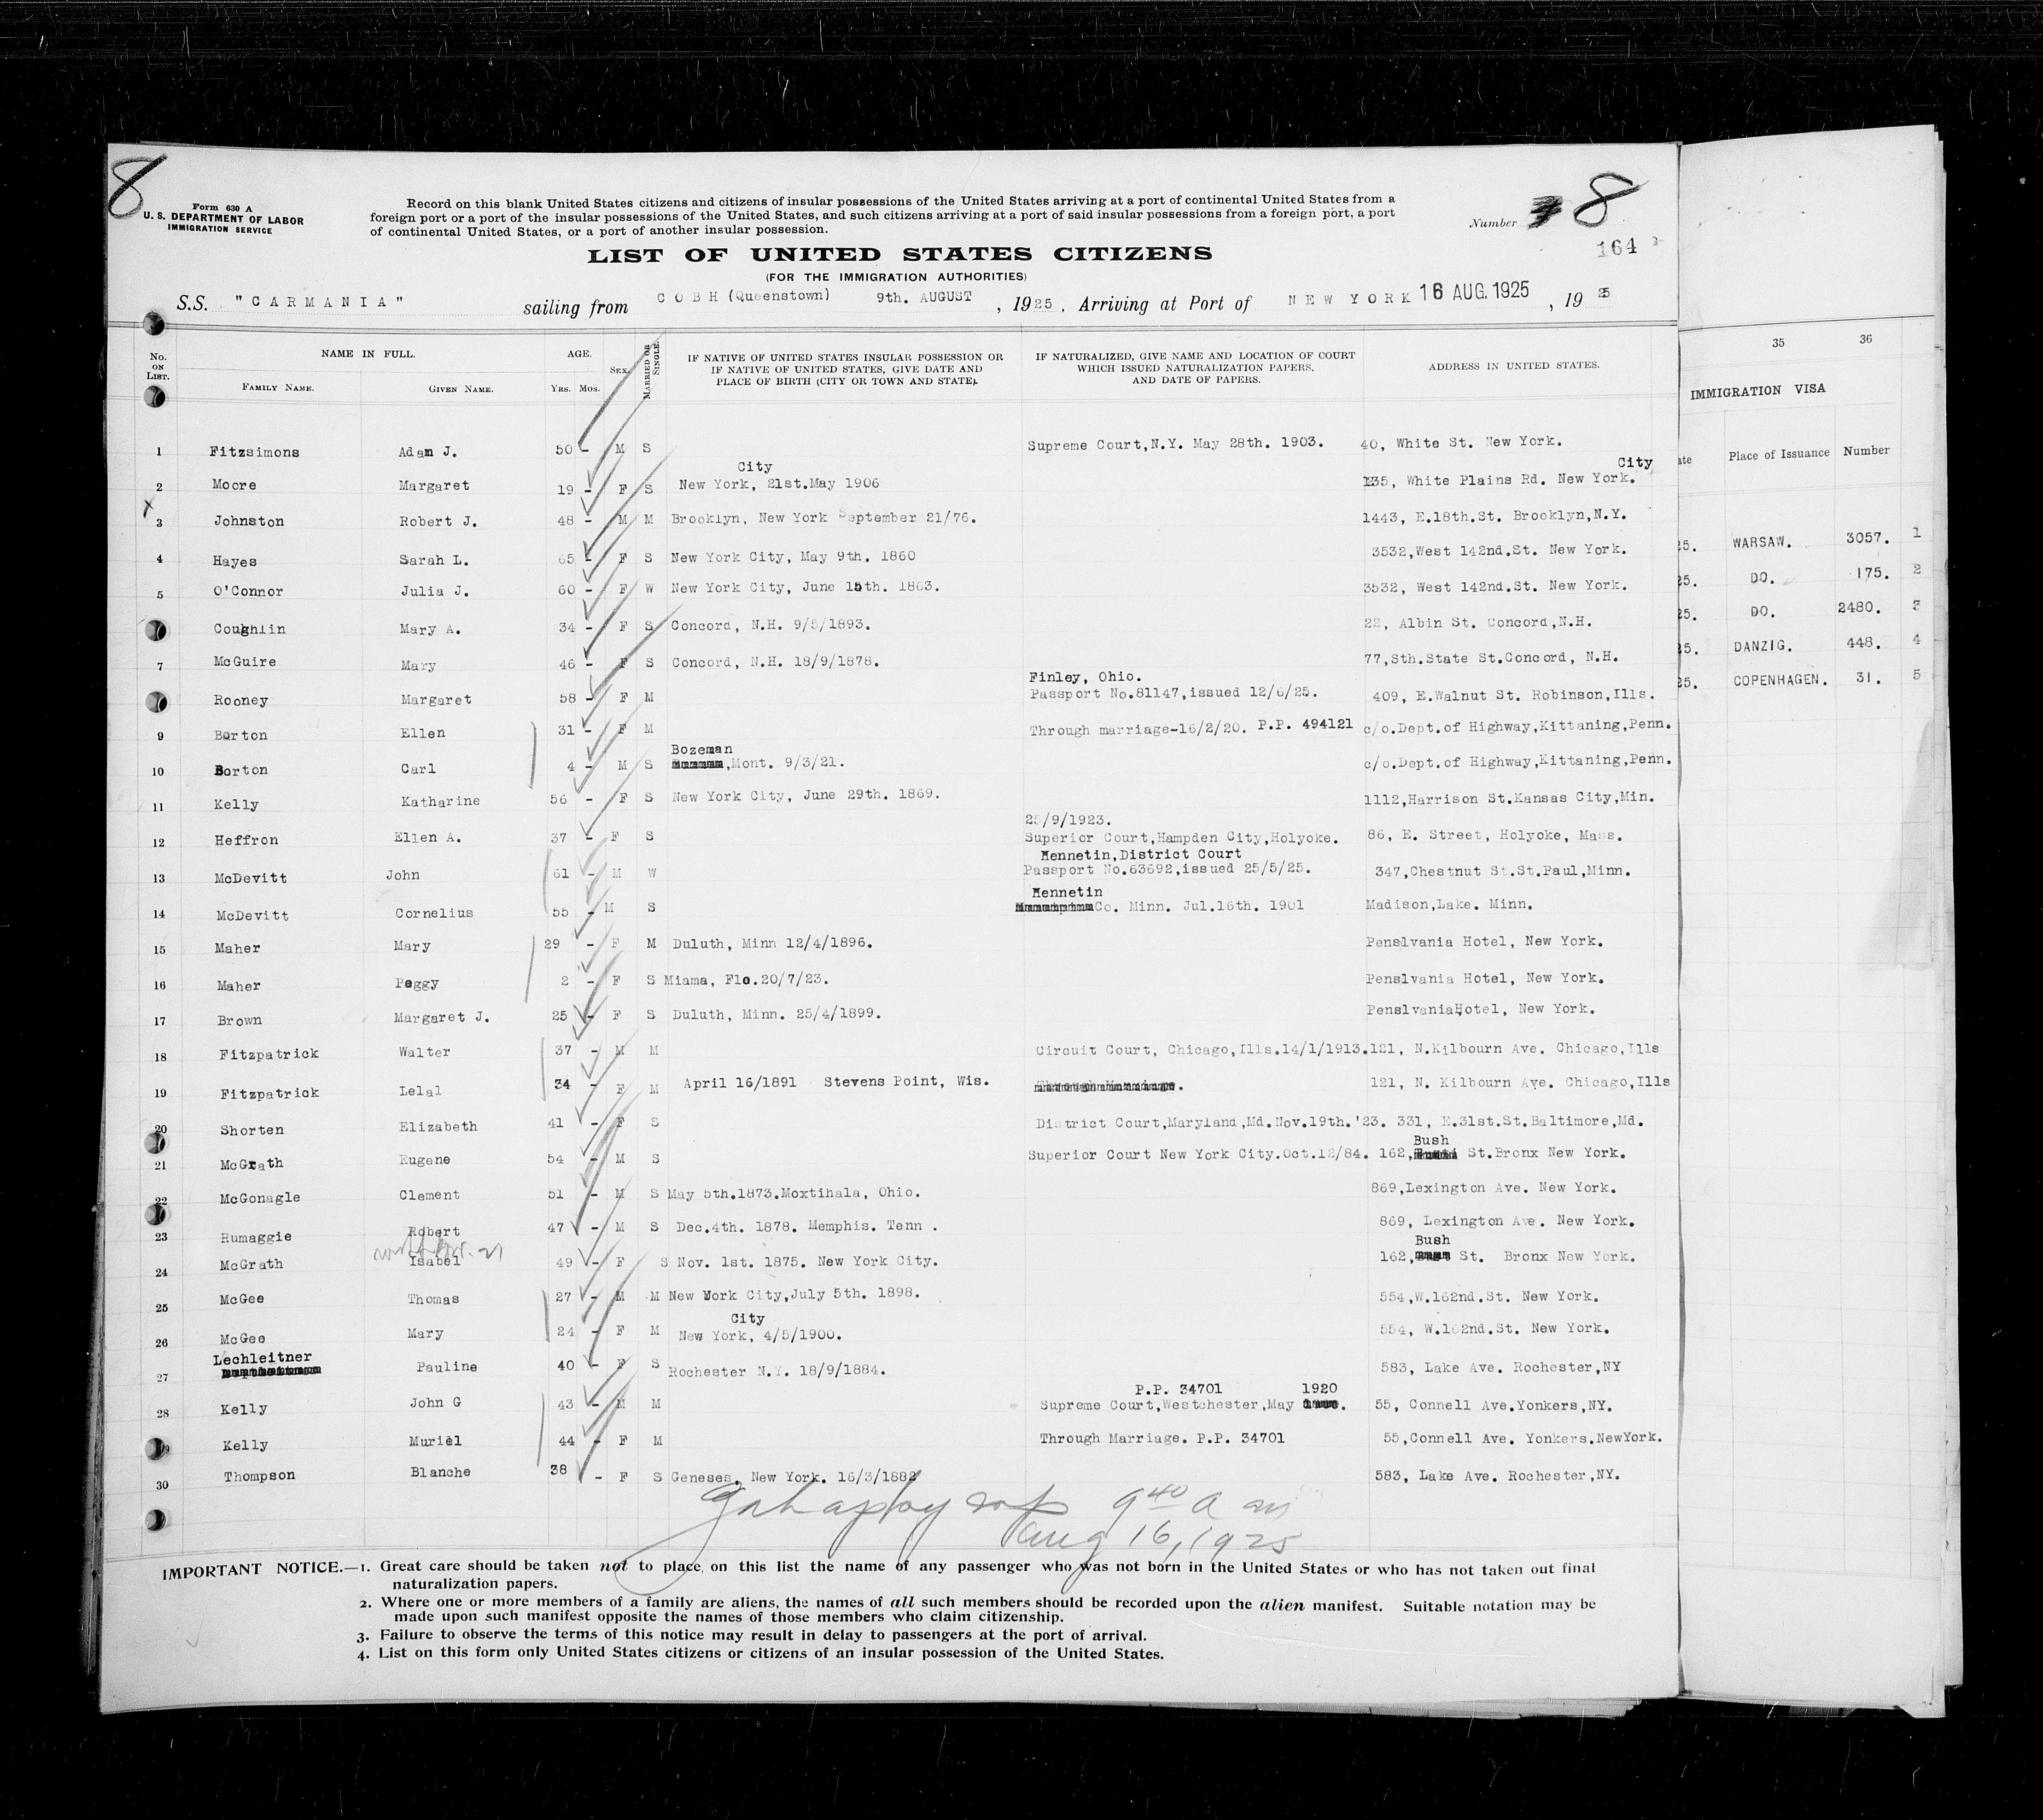 8
Form 630 A
U. S. DEPARTMENT OF LABOR
IMMIGRATION SERVICE
Record on this blank United States citizens and citizens of insular possessions of the United States arriving at a port of continental United States from a
foreign port or a port of the insular possessions of the United States, and such citizens arriving at a port of said insular possessions from a foreign port, a port
of continental United States, or a port of another insular possession.
Number 8
164
LIST OF UNITED STATES CITIZENS
(FOR THE IMMIGRATION AUTHORITIES)
S.S. "CARMANIA" sailing from COBH (Queenstown) 9th. AUGUST, 1925, Arriving at Port of NEW YORK 16 AUG. 1925, 19 25
No. ON LIST. NAME IN FULL. FAMILY NAME. GIVEN NAME. AGE. YRS. MOS. SEX. MARRIED OR SINGLE. IF NATIVE OF UNITED STATES INSULAR POSSESSION OR IF NATIVE OF UNITED STATES, GIVE DATE AND PLACE OF BIRTH (CITY OR TOWN AND STATE). IF NATURALIZED, GIVE NAME AND LOCATION OF COURT WHICH ISSUED NATURALIZATION PAPERS, AND DATE OF PAPERS. ADDRESS IN UNITED STATES.
1 Fitzsimons Adam J. 50 - M S Supreme Court,N.Y. May 28th. 1903. 40, White St. New York.
City City
2 Moore Margaret 19 - F S New York, 21st.May 1906 135, White Plains Rd. New York.
x
3 Johnston Robert J. 48 - M M Brooklyn, New York September 21/76. 1443, E.18th.St. Brooklyn,N.Y.
4 Hayes Sarah L. 65 - F S New York City, May 9th. 1860 3532,West 142nd.St. New York.
5 O'Connor Julia J. 60 - F W New York City, June 15th. 1863. 3532, West 142nd.St. New York.
Coughlin Mary A. 34 - F S Concord, N.H. 9/5/1893. 22, Albin St. Concord,N.H.
7 McGuire Mary 46 - F S Concord, N.H. 18/9/1878. 77,Sth.State St.Concord, N.H.
Finley, Ohio.
Rooney Margaret 58 - F M Passport No.81147,issued 12/6/25. 409, E.Walnut St. Robinson,Ills.
9 Borton Ellen 31 - F M Through marriage-16/2/20. P.P. 494121 c/o.Dept.of Highway,Kittaning,Penn.
Bozeman
10 Borton Carl 4 - M S ,Mont. 9/3/21. c/o.Dept.of Highway,Kittaning,Penn.
11 Kelly Katharine 56 - F S New York City, June 29th. 1869. 1112,Harrison St.Kansas City,Min.
25/9/1923.
12 Heffron Ellen A. 37 - F S Superior Court,Hampden City,Holyoke. 86, E. Street, Holyoke, Mass.
Hennetin,District Court
13 McDevitt John 61 - M W Passport No.63692,issued 25/5/25. 347,Chestnut St.St.Paul,Minn.
Hennetin
14 McDevitt Cornelius 55 - M S Co. Minn. Jul.16th. 1901 Madison,Lake. Minn.
15 Maher Mary 29 - F M Duluth, Minn 12/4/1896. Penslvania Hotel, New York.
16 Maher Peggy 2 - F S Miama, Flo.20/7/23. Penslvania Hotel, New York.
17 Brown Margaret J. 25 - F S Duluth, Minn. 25/4/1899. PenslvaniaHotel, New York.
18 Fitzpatrick Walter 37 - M M Circuit Court, Chicago,Ills.14/1/1913. 121, N.Kilbourn Ave. Chicago,Ills
19 Fitzpatrick Lelal 34 - F M April 16/1891 Stevens Point, Wis. 121, N. Kilbourn Ave. Chicago,Ills
20 Shorten Elizabeth 41 - F S District Court,Maryland,Md.Nov.19th.'23. 331, E.31st.St.Baltimore,Md.
Bush
21 McGrath Eugene 54 - M S Superior Court New York City.Oct.12/84. 162, St.Bronx New York.
22 McGonagle Clement 51 - M S May 5th.1873.Moxtihala, Ohio. 869,Lexington Ave. New York.
23 Rumaggie Robert 47 - M S Dec.4th. 1878. Memphis. Tenn . 869, Lexington Ave. New York.
Bush
24 McGrath Isabel 49 - F S Nov. 1st. 1875. New York City. 162, St. Bronx New York.
25 McGee Thomas 27 - M M New York City,July 5th. 1898. 554,W.162nd.St. New York.
City
26 McGee Mary 24 - F M New York, 4/5/1900. 554, W.162nd.St. New York.
Lechleitner
27 Pauline 40 - F S Rochester N.Y. 18/9/1884. 583, Lake Ave. Rochester,NY
P.P. 34701 1920
28 Kelly John G 43 - M M Supreme Court,Westchester,May . 55, Connell Ave.Yonkers,NY.
29 Kelly Muriel 44 - F M Through Marriage. P.P. 34701 55,Connell Ave. Yonkers.NewYork.
30 Thompson Blanche 38 - F S Geneses, New York. 16/3/1882 583, Lake Ave. Rochester,NY.
9 40 a m
Aug 16, 1925
IMPORTANT NOTICE.—1. Great care should be taken not to place on this list the name of any passenger who was not born in the United States or who has not taken out final
naturalization papers.
2. Where one or more members of a family are aliens, the names of all such members should be recorded upon the alien manifest. Suitable notation may be
made upon such manifest opposite the names of those members who claim citizenship.
3. Failure to observe the terms of this notice may result in delay to passengers at the port of arrival.
4. List on this form only United States citizens or citizens of an insular possession of the United States.
35 36
IMMIGRATION VISA
ate Place of Issuance Number
25. WARSAW. 3057. 1
25. DO. 175. 2
25. DO. 2480. 3
25. DANZIG. 448. 4
25. COPENHAGEN. 31. 5